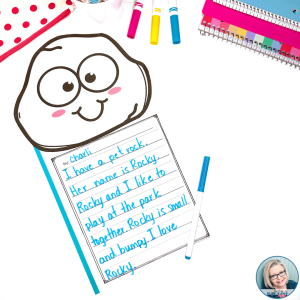 by: Charli
I have a pet rock.
Her name is Rocky.
Rocky and I like to
play at the park
together. Rocky is small
and bumpy. I love
Rocky.